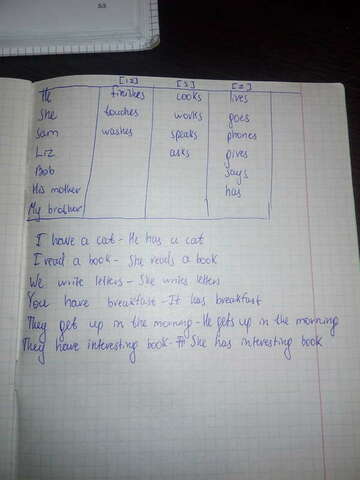 [iz] [s] [z]
He finishes cooks lives
She touches works goes
Sam washes speaks phones
Liz asks gives
Bob says
His mother has
My brother
I have a cat - He has a cat
I read a book - She reads a book
We write letters - She writes letters
You have breakfast - It has breakfast
They get up in the morning - He gets up in the morning
They have interesting book - She has interesting book